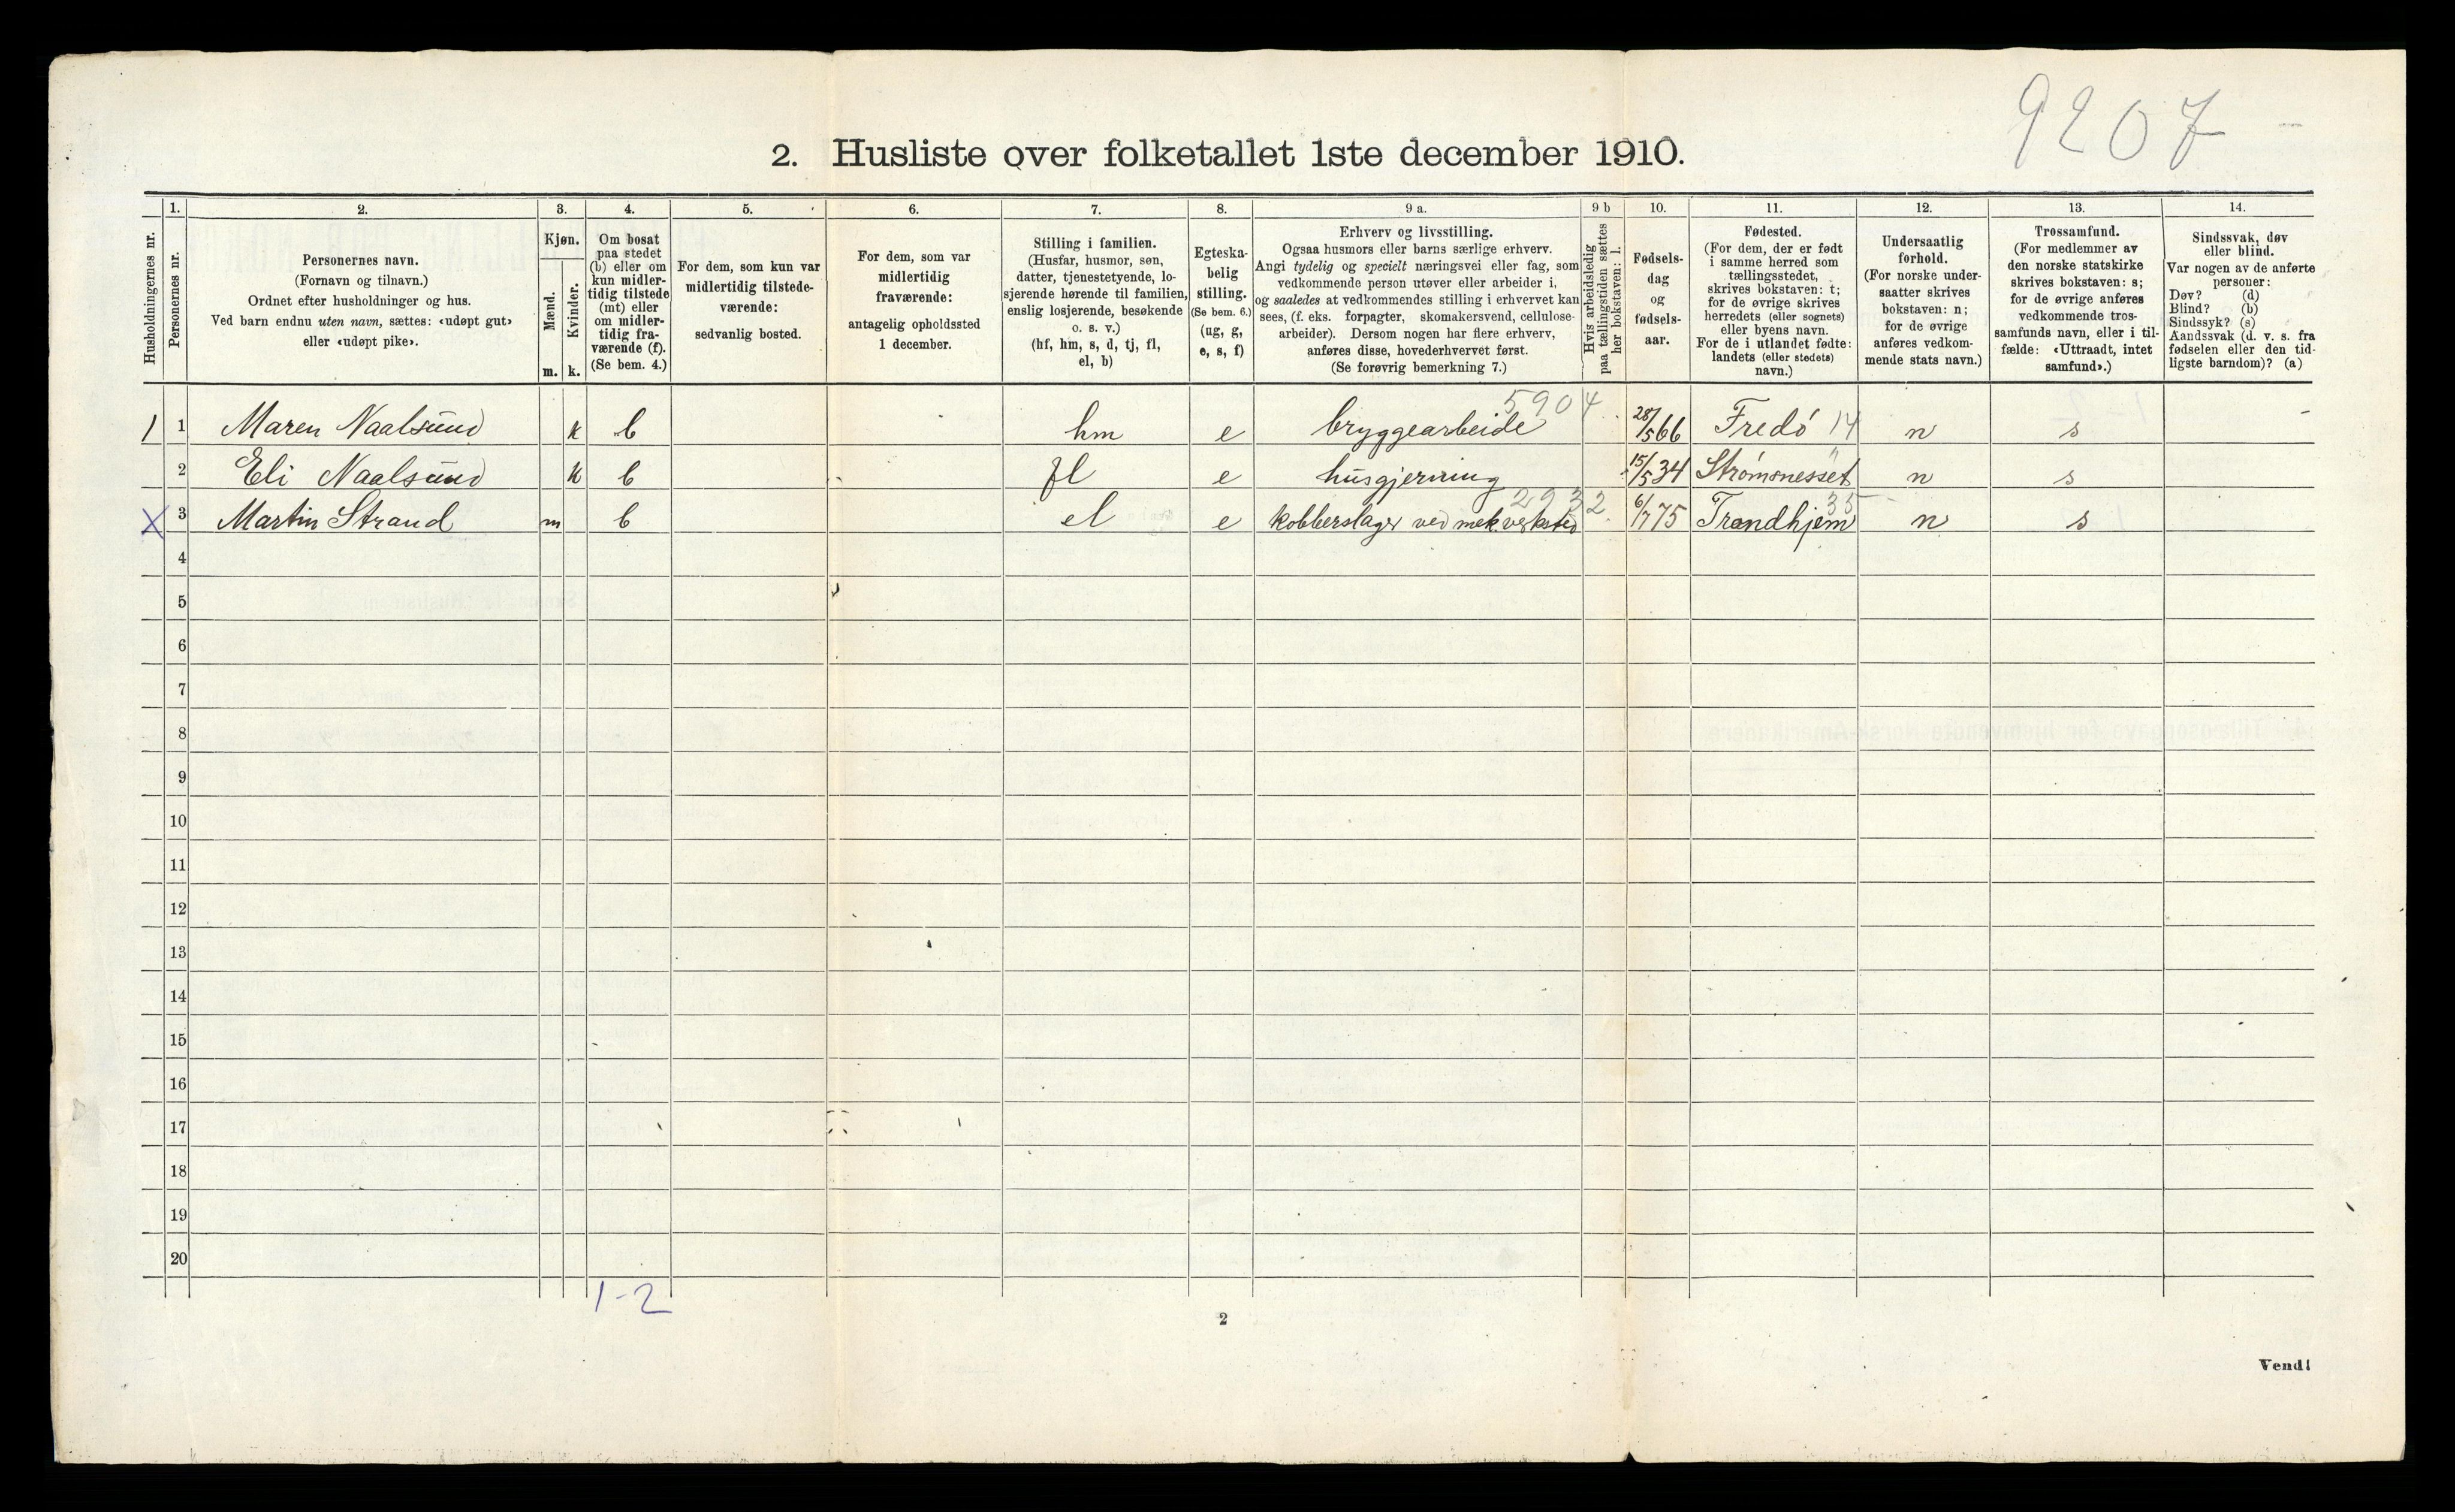 9207 -
2. Husliste over folketallet 1ste december 1910.
Husholdningernes nr.
1.
Personernes nr.
2.
Personernes navn.
(Fornavn og tilnavn.)
Ordnet efter husholdninger og hus.
Ved barn endnu uten navn, sættes: «udøpt gut»
eller «udøpt pike».
3.
Kjøn.
Mænd.
Kvinder.
m. k.
4.
Om bosat
paa stedet
(b) eller om
kun midler-
tidig tilstede
(mt) eller
om midler-
tidig fra-
værende (f).
(Se bem. 4.)
5.
For dem, som kun var
midlertidig tilstede-
værende:
sedvanlig bosted.
6.
For dem, som var
midlertidig
fraværende:
antagelig opholdssted
1 december.
7.
Stilling i familien.
(Husfar, husmor, søn,
datter, tjenestetyende, lo-
sjerende hørende til familien,
enslig losjerende, besøkende
o. s. v.)
(hf, hm, s, d, tj, fl,
el, b)
8.
Egteska-
belig
stilling.
(Se bem. 6.)
(ug, g,
e, s, f)
9 a.
Erhverv og livsstilling.
Ogsaa husmors eller barns særlige erhverv.
Angi tydelig og specielt næringsvei eller fag, som
vedkommende person utøver eller arbeider i,
og saaledes at vedkommendes stilling i erhvervet kan
sees, (f. eks. forpagter, skomakersvend, cellulose-
arbeider). Dersom nogen har flere erhverv,
anføres disse, hovederhvervet først.
(Se forøvrig bemerkning 7.)
9 b
Hvis arbeidsledig
paa tællingstiden sættes
her bokstaven: l.
10.
Fødsels-
dag
og
fødsels-
aar.
11.
Fødested.
(For dem, der er født
i samme herred som
tællingsstedet,
skrives bokstaven: t;
for de øvrige skrives
herredets (eller sognets)
eller byens navn.
For de i utlandet fødte:
landets (eller stedets)
navn.)
12.
Undersaatlig
forhold.
(For norske under-
saatter skrives
bokstaven: n;
for de øvrige
anføres vedkom-
mende stats navn.)
13.
Trossamfund.
(For medlemmer av
den norske statskirke
skrives bokstaven: s;
for de øvrige anføres
vedkommende tros-
samfunds navn, eller i til-
fælde: «Uttraadt, intet
samfund».)
14.
Sindssvak, døv
eller blind.
Var nogen av de anførte
personer:
Døv? (d)
Blind? (b)
Sindssyk? (s)
Aandssvak (d. v. s. fra
fødselen eller den tid-
ligste barndom)? (a)
5904
1 1 Maren Naalsund k b hm e bryggearbeide 28/5 66 Fredö 14 n s -
2 Eli Naalsund k b fl e husgjerning 15/5 34 Strömsnesset " n s
2932 35
X 3 Martin Strand m b el e kobberslager ved mek verksted 6/7 75 Trondhjem n s
4
5
6
7
8
9
10
11
12
13
14
15
16
17
18
19
20
1-2
2
Vend!